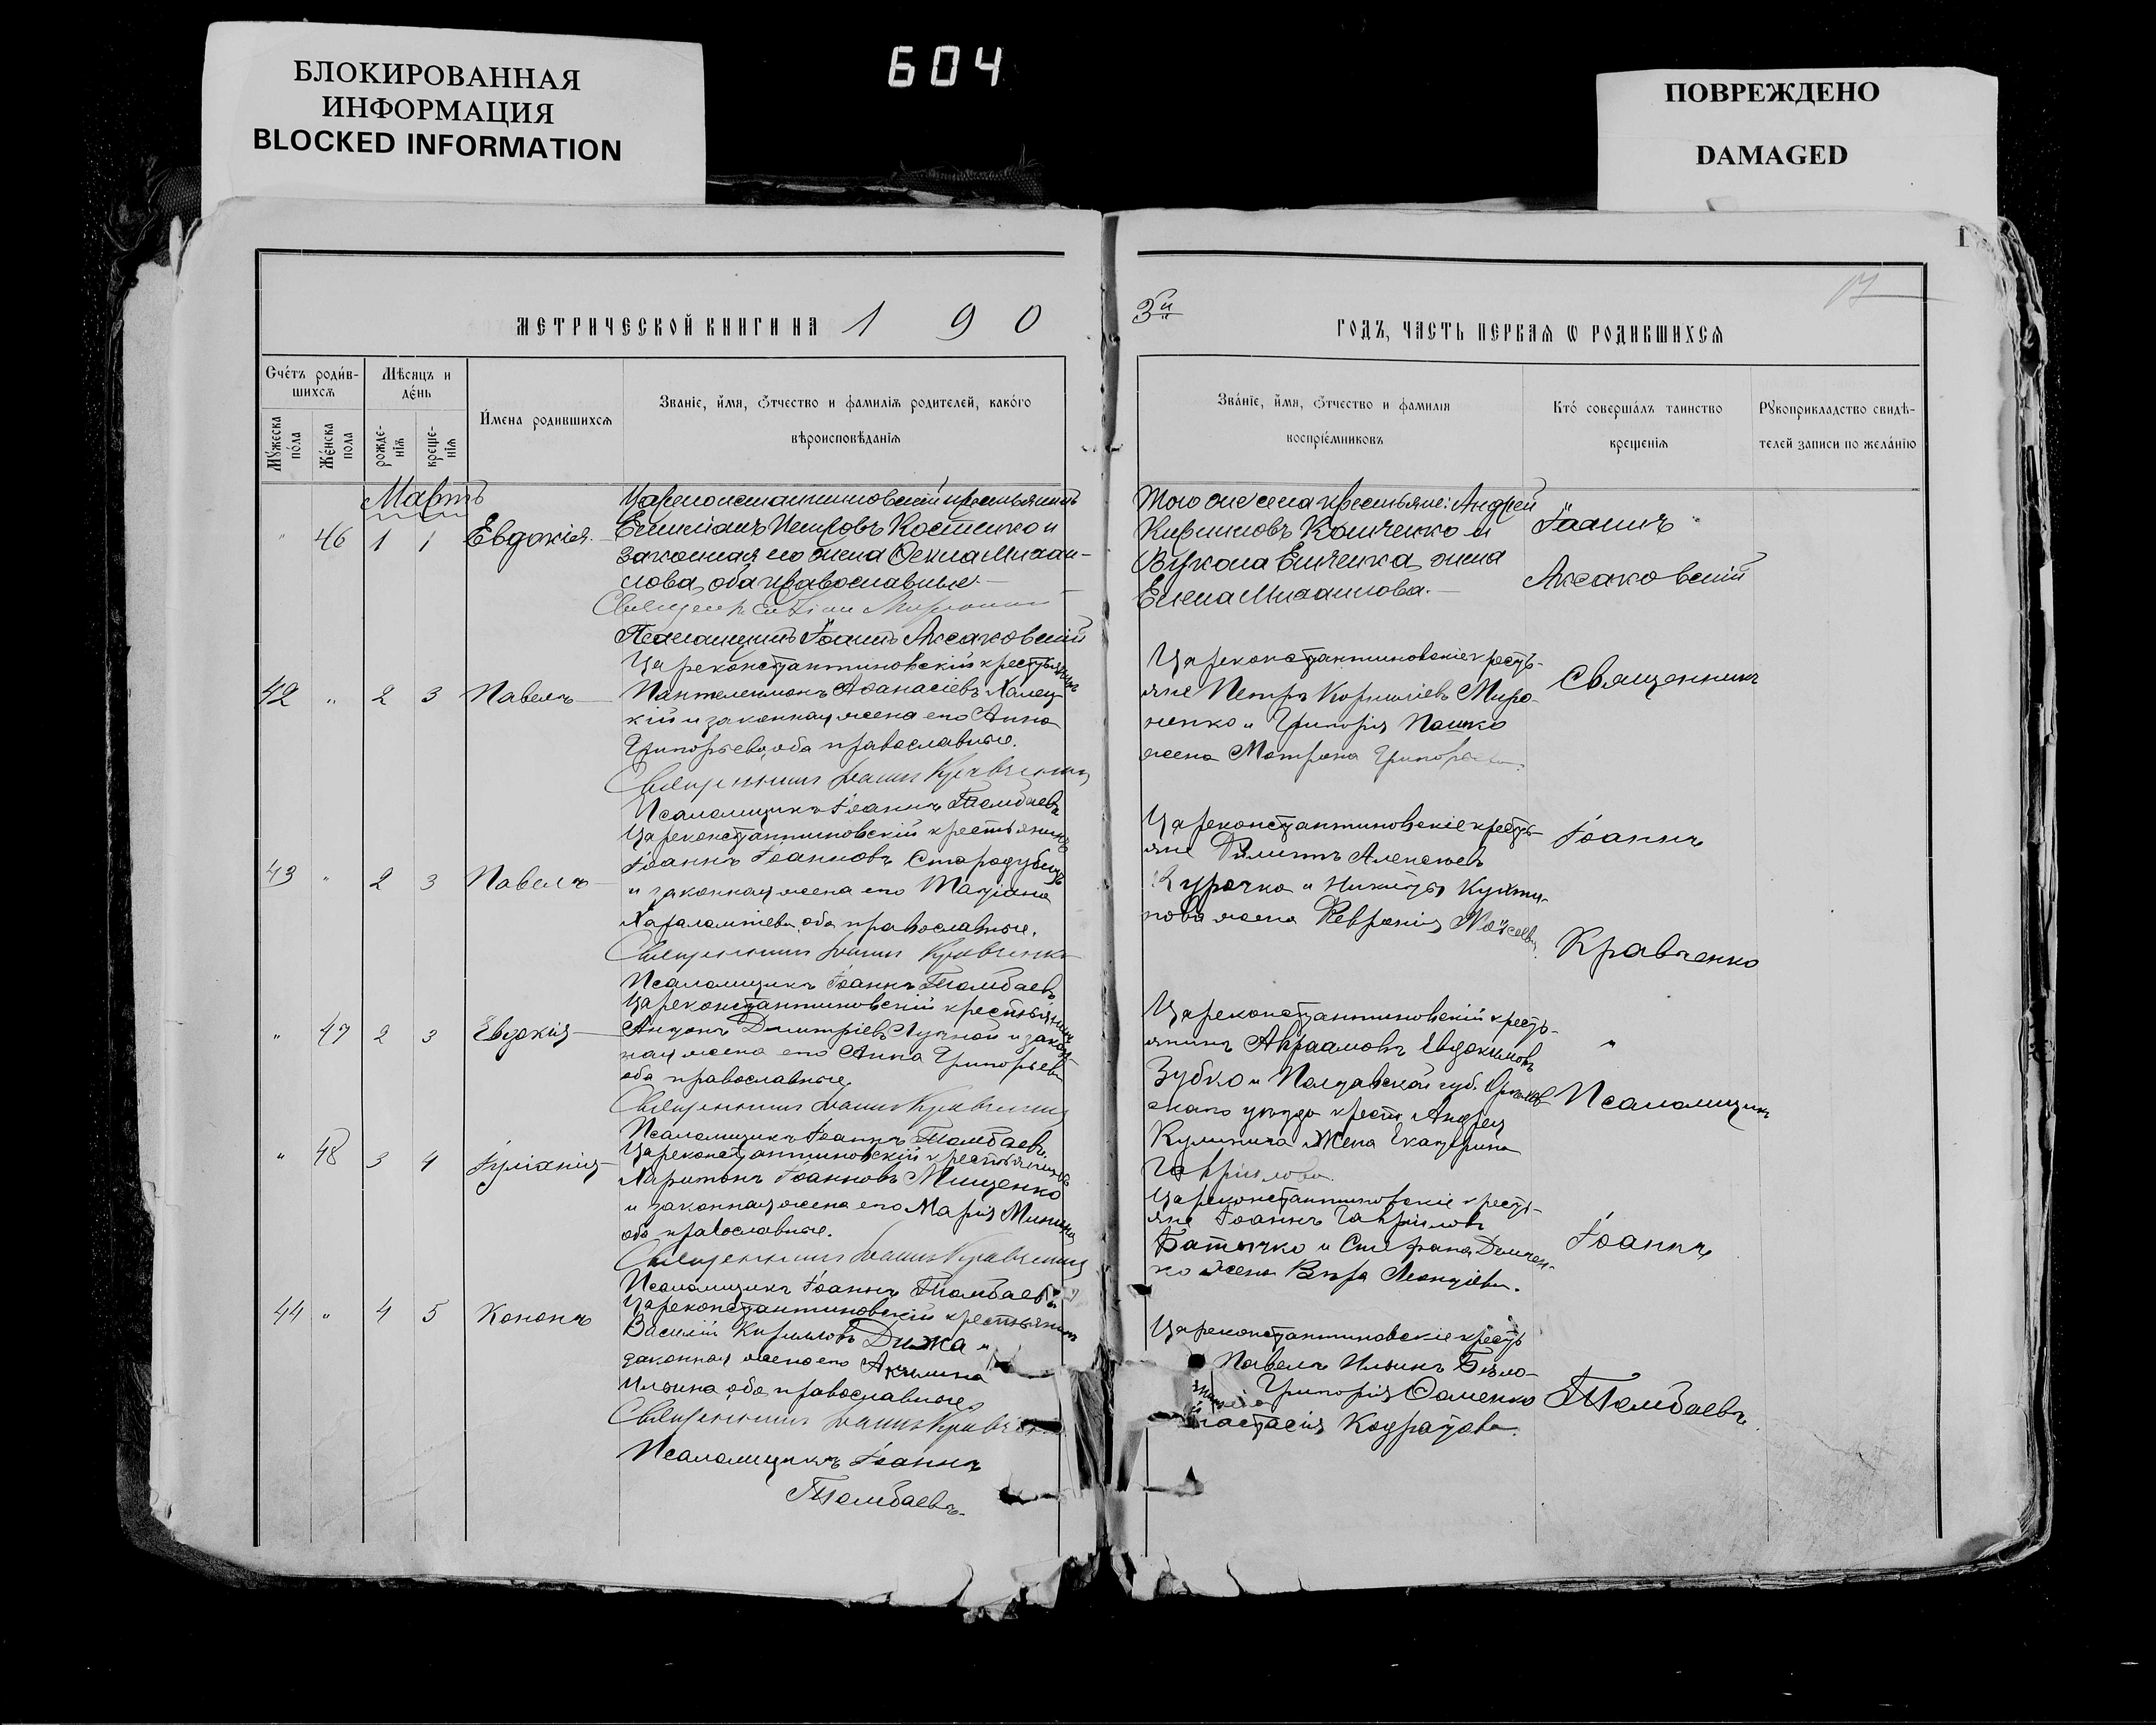 БЛОКИРОВАННАЯ
ИНФОРМАЦИЯ
BLOCKED INFORMATION
604
ПОВРЕЖДЕНО
DAMAGED
17
МЕТРИЧЕСКОЙ КНИГИ НА 1 9 0
3й
ГОДЪ, ЧАСТЬ ПЕРВАЯ Ѡ РОДИВШИХСЯ
Счéтъ роди́в-
шихсѧ
Мѣсяцъ и
дéнь
Мꙋжеска
по́ла
Жéнска
пола
рожде-
нїѧ
креще-
нїѧ
И́мена родившихсѧ
Званїе, и́мя, Ѿчество и фамилїѧ родителей, како́го
вѣроисповѣданїѧ
Зва́нїе, и́мя, Ѿчество и фамилїя
воспрїе́мниковъ
Кто́ соверша́лъ таинство
крещенїѧ
Рꙋкоприкладство свидѣ-
телей записи по жела́нїю
Мартъ
" 46 1 1 Евдокія
Цареконстантиновскій крестьянинъ
Емиліанъ Петровъ Костенко и
законная его жена Ѳекла Михаи-
лова, оба православные.
Псаломщикъ Іоаннъ Аксаковскій
Того же села крестьяне: Андрей
Кирилловъ Коиченко и
Вукола Енченка жена
Елена Михаилова.
Іоаннъ
Аксаковскій
42 " 2 3 Павелъ
Цареконстантиновскій крестьянинъ
Пантелеимонъ Аѳанасіевъ Халец-
кій и законная жена его Анна
Григорьева, оба православные.
Священникъ Іоаннъ Кравченко
Псаломщикъ Іоаннъ Тембаевъ
Цареконстантиновскіе кресть-
яне Петръ Корниліевъ Миро-
ненко и Григорія Пошко
жена Матрона Григорьева
Священникъ
43 " 2 3 Павелъ
Цареконстантиновскій крестьянинъ
Іоаннъ Іоанновъ Стародубецъ
и законная жена его Татіана
Харалампіева, оба православные.
Священникъ Іоаннъ Кравченко
Псаломщикъ Іоаннъ Тембаевъ
Цареконстантиновскіе кресть-
яне Филиппъ Алексѣевъ
Курочка и Никиты Кухти-
нова жена Февронія Моѵсеева
Іоаннъ
Кравченко
" 47 2 3 Евдокія
Цареконстантиновскій крестьянинъ
Антонъ Димитріевъ Лучной и закон-
ная жена его Анна Григорьева
оба православные.
Священникъ Іоаннъ Кравченко
Псаломщикъ Іоаннъ Тембаевъ
Цареконстантиновскій кресть-
янинъ Авраамовъ Евдокимовъ
Зубко и Полтавской губ.
скаго уѣзда крест. Андрея
Кулинича жена Екатерина
Гавріилова.
"
Псаломщикъ
" 48 3 4 Іуліанія
Цареконстантиновскій крестьянинъ
Харитонъ Іоанновъ Мищенко
и законная жена его Марія Минина
оба православные.
Священникъ Іоаннъ Кравченко
Псаломщикъ Іоаннъ Тембаевъ
Цареконстантиновскіе кресть-
яне Іоаннъ Гавріиловъ
Батычко и Стефана Демчен-
ко жена Вѣра Леонтіева.
Іоаннъ
44 " 4 5 Кононъ
Цареконстантиновскій крестьянинъ
Василій Кирилловъ Дижа и
законная жена его Акилина
Ильина, оба православные
Священникъ Іоаннъ Кравченко
Псаломщикъ Іоаннъ
Тембаевъ.
Цареконстантиновскіе кресть
Павелъ Ильинъ Бѣло-
Григорія Саменко
настасія Кодратова.
Тембаевъ.